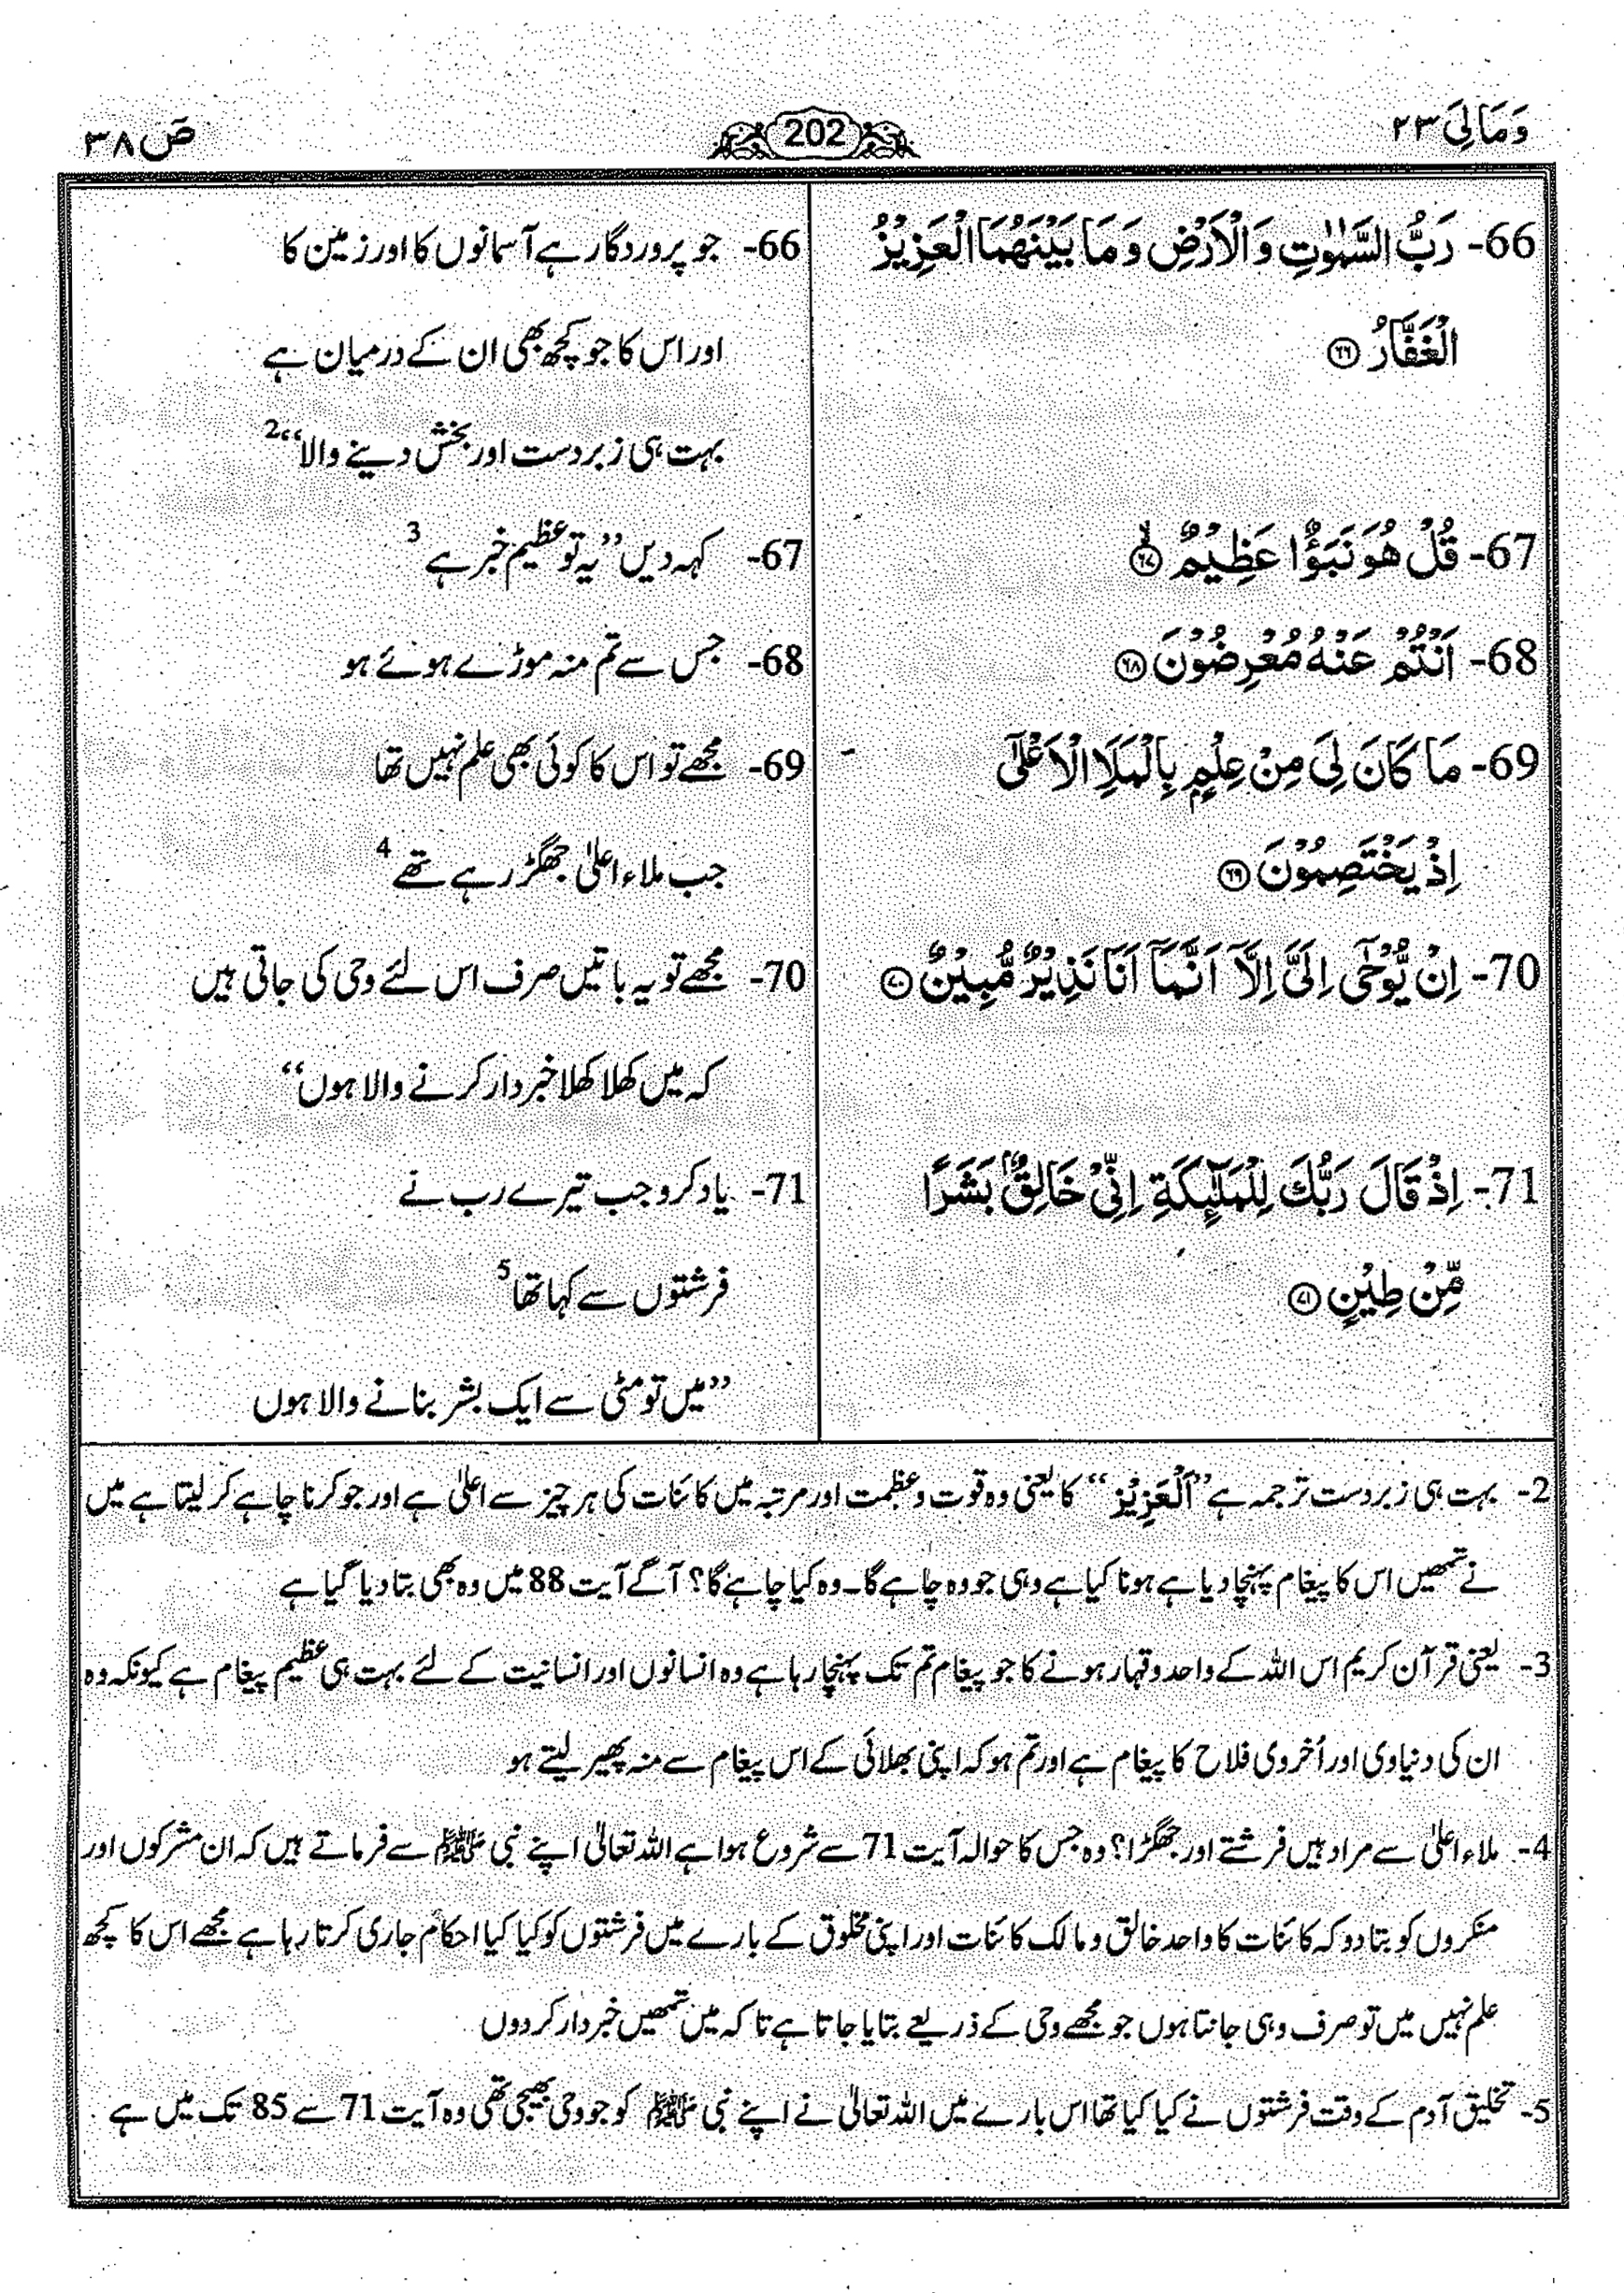 وَمَالِیَ ۲۳
202
صٓ ۳۸
66- رَبُّ السَّمٰوٰتِ وَالْاَرْضِ وَمَا بَيْنَهُمَا الْعَزِيْزُ
الْغَفَّارُ ﴿۶۶﴾
67- قُلْ هُوَ نَبَؤٌا عَظِيْمٌ ﴿۶۷﴾ۙ
68- اَنْتُمْ عَنْهُ مُعْرِضُوْنَ ﴿۶۸﴾
69- مَا كَانَ لِيَ مِنْ عِلْمٍۭ بِالْمَلَاِ الْاَعْلٰٓى
اِذْ يَخْتَصِمُوْنَ ﴿۶۹﴾
70- اِنْ يُّوْحٰٓى اِلَيَّ اِلَّاۤ اَنَّمَاۤ اَنَا نَذِيْرٌ مُّبِيْنٌ ﴿۷۰﴾
71- اِذْ قَالَ رَبُّكَ لِلْمَلٰٓئِكَةِ اِنِّيْ خَالِقٌۢ بَشَرًا
مِّنْ طِيْنٍ ﴿۷۱﴾
66- جو پروردگار ہے آسمانوں کا اور زمین کا
اور اس کا جو کچھ بھی ان کے درمیان ہے
بہت ہی زبردست اور بخش دینے والا‘‘ 2
67- کہہ دیں ’’یہ تو عظیم خبر ہے 3
68- جس سے تم منہ موڑے ہوئے ہو
69- مجھے تو اس کا کوئی بھی علم نہیں تھا
جب ملاء اعلیٰ جھگڑ رہے تھے 4
70- مجھے تو یہ باتیں صرف اس لئے وحی کی جاتی ہیں
کہ میں کھلا کھلا خبردار کرنے والا ہوں‘‘
71- یاد کرو جب تیرے رب نے
فرشتوں سے کہا تھا 5
’’میں تو مٹی سے ایک بشر بنانے والا ہوں
2- بہت ہی زبردست ترجمہ ہے ’’اَلْعَزِیْزُ‘‘ کا یعنی وہ قوت و عظمت اور مرتبہ میں کائنات کی ہر چیز سے اعلیٰ ہے اور جو کرنا چاہے کر لیتا ہے میں
نے تمھیں اس کا پیغام پہنچا دیا ہے ہونا کیا ہے وہی جو وہ چاہے گا۔ وہ کیا چاہے گا؟ آگے آیت 88 میں وہ بھی بتا دیا گیا ہے
3- یعنی قرآن کریم اس اللہ کے واحد و قہار ہونے کا جو پیغام تم تک پہنچا رہا ہے وہ انسانوں اور انسانیت کے لئے بہت ہی عظیم پیغام ہے کیونکہ وہ
ان کی دنیاوی اور اُخروی فلاح کا پیغام ہے اور تم ہو کہ اپنی بھلائی کے اس پیغام سے منہ پھیر لیتے ہو
4- ملاء اعلیٰ سے مراد ہیں فرشتے اور جھگڑا؟ وہ جس کا حوالہ آیت 71 سے شروع ہوا ہے اللہ تعالیٰ اپنے نبی ﷺ سے فرماتے ہیں کہ ان مشرکوں اور
منکروں کو بتا دو کہ کائنات کا واحد خالق و مالک کائنات اور اپنی مخلوق کے بارے میں فرشتوں کو کیا کیا احکام جاری کرتا رہا ہے مجھے اس کا کچھ
علم نہیں میں تو صرف وہی جانتا ہوں جو مجھے وحی کے ذریعے بتایا جاتا ہے تا کہ میں تمھیں خبردار کر دوں
5- تخلیق آدم کے وقت فرشتوں نے کیا کیا تھا اس بارے میں اللہ تعالیٰ نے اپنے نبی ﷺ کو جو وحی بھیجی تھی وہ آیت 71 سے 85 تک میں ہے